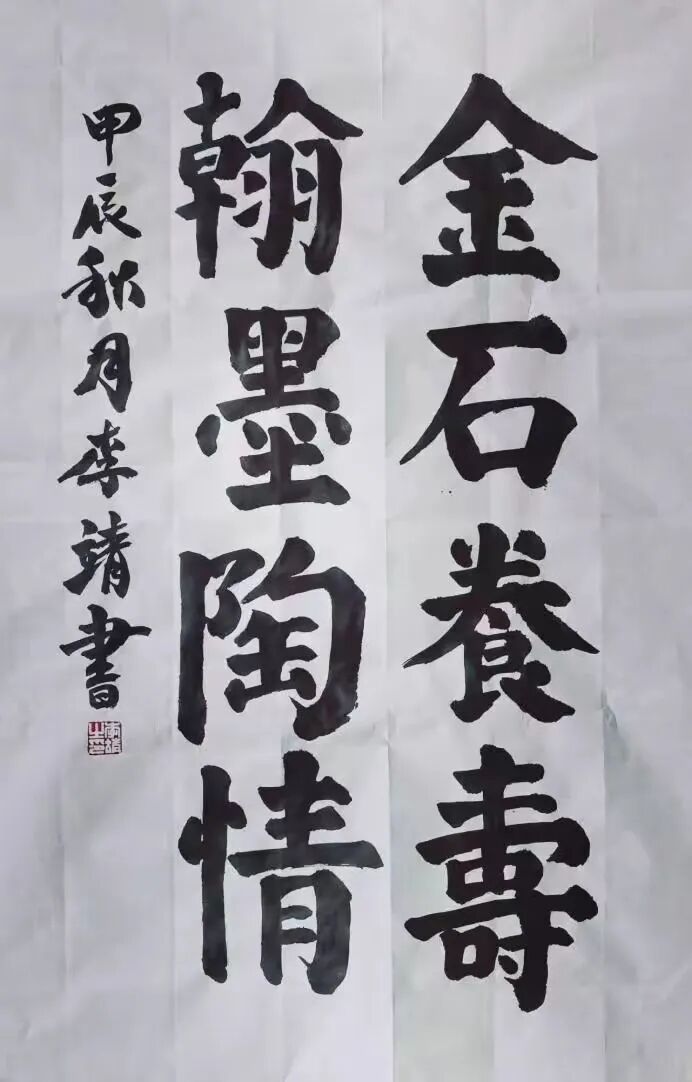 金石養壽
翰墨陶情
甲辰秋月李靖書